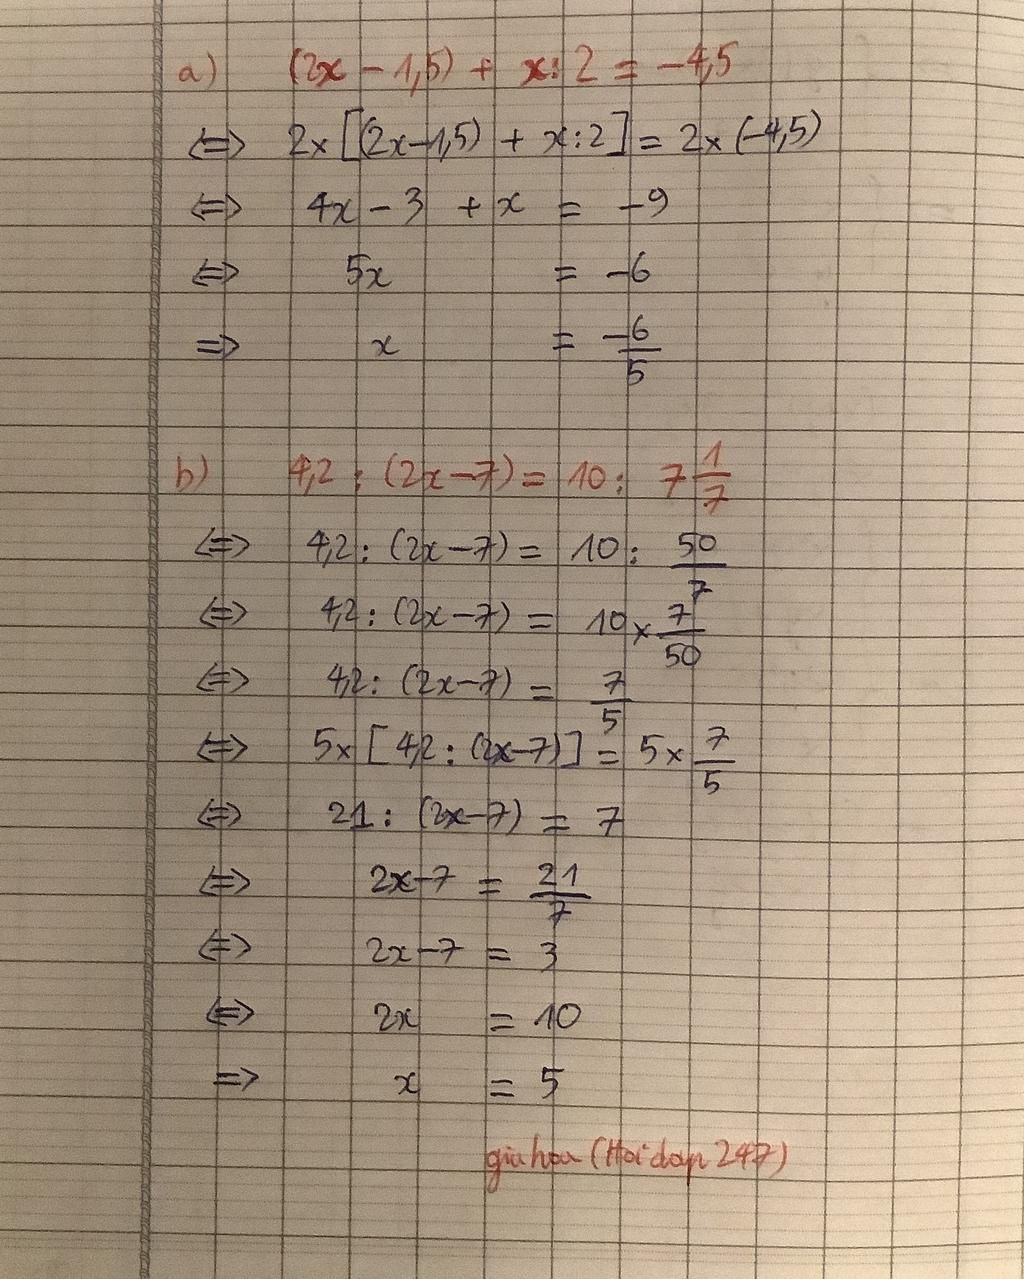 a) (2x - 1,5) + x : 2 = -4,5
⇔ 2 × [(2x-1,5) + x : 2] = 2 × (-4,5)
⇔ 4x - 3 + x = -9
⇔ 5x = -6
⇒ x = -6/5
b) 4,2 : (2x-7) = 10 : 7 1/7
⇔ 4,2 : (2x-7) = 10 : 50/7
⇔ 4,2 : (2x-7) = 10 × 7/50
⇔ 4,2 : (2x-7) = 7/5
⇔ 5 × [4,2 : (2x-7)] = 5 × 7/5
⇔ 21 : (2x-7) = 7
⇔ 2x-7 = 21/7
⇔ 2x-7 = 3
⇔ 2x = 10
⇒ x = 5
giahoa (Hoidap 247)